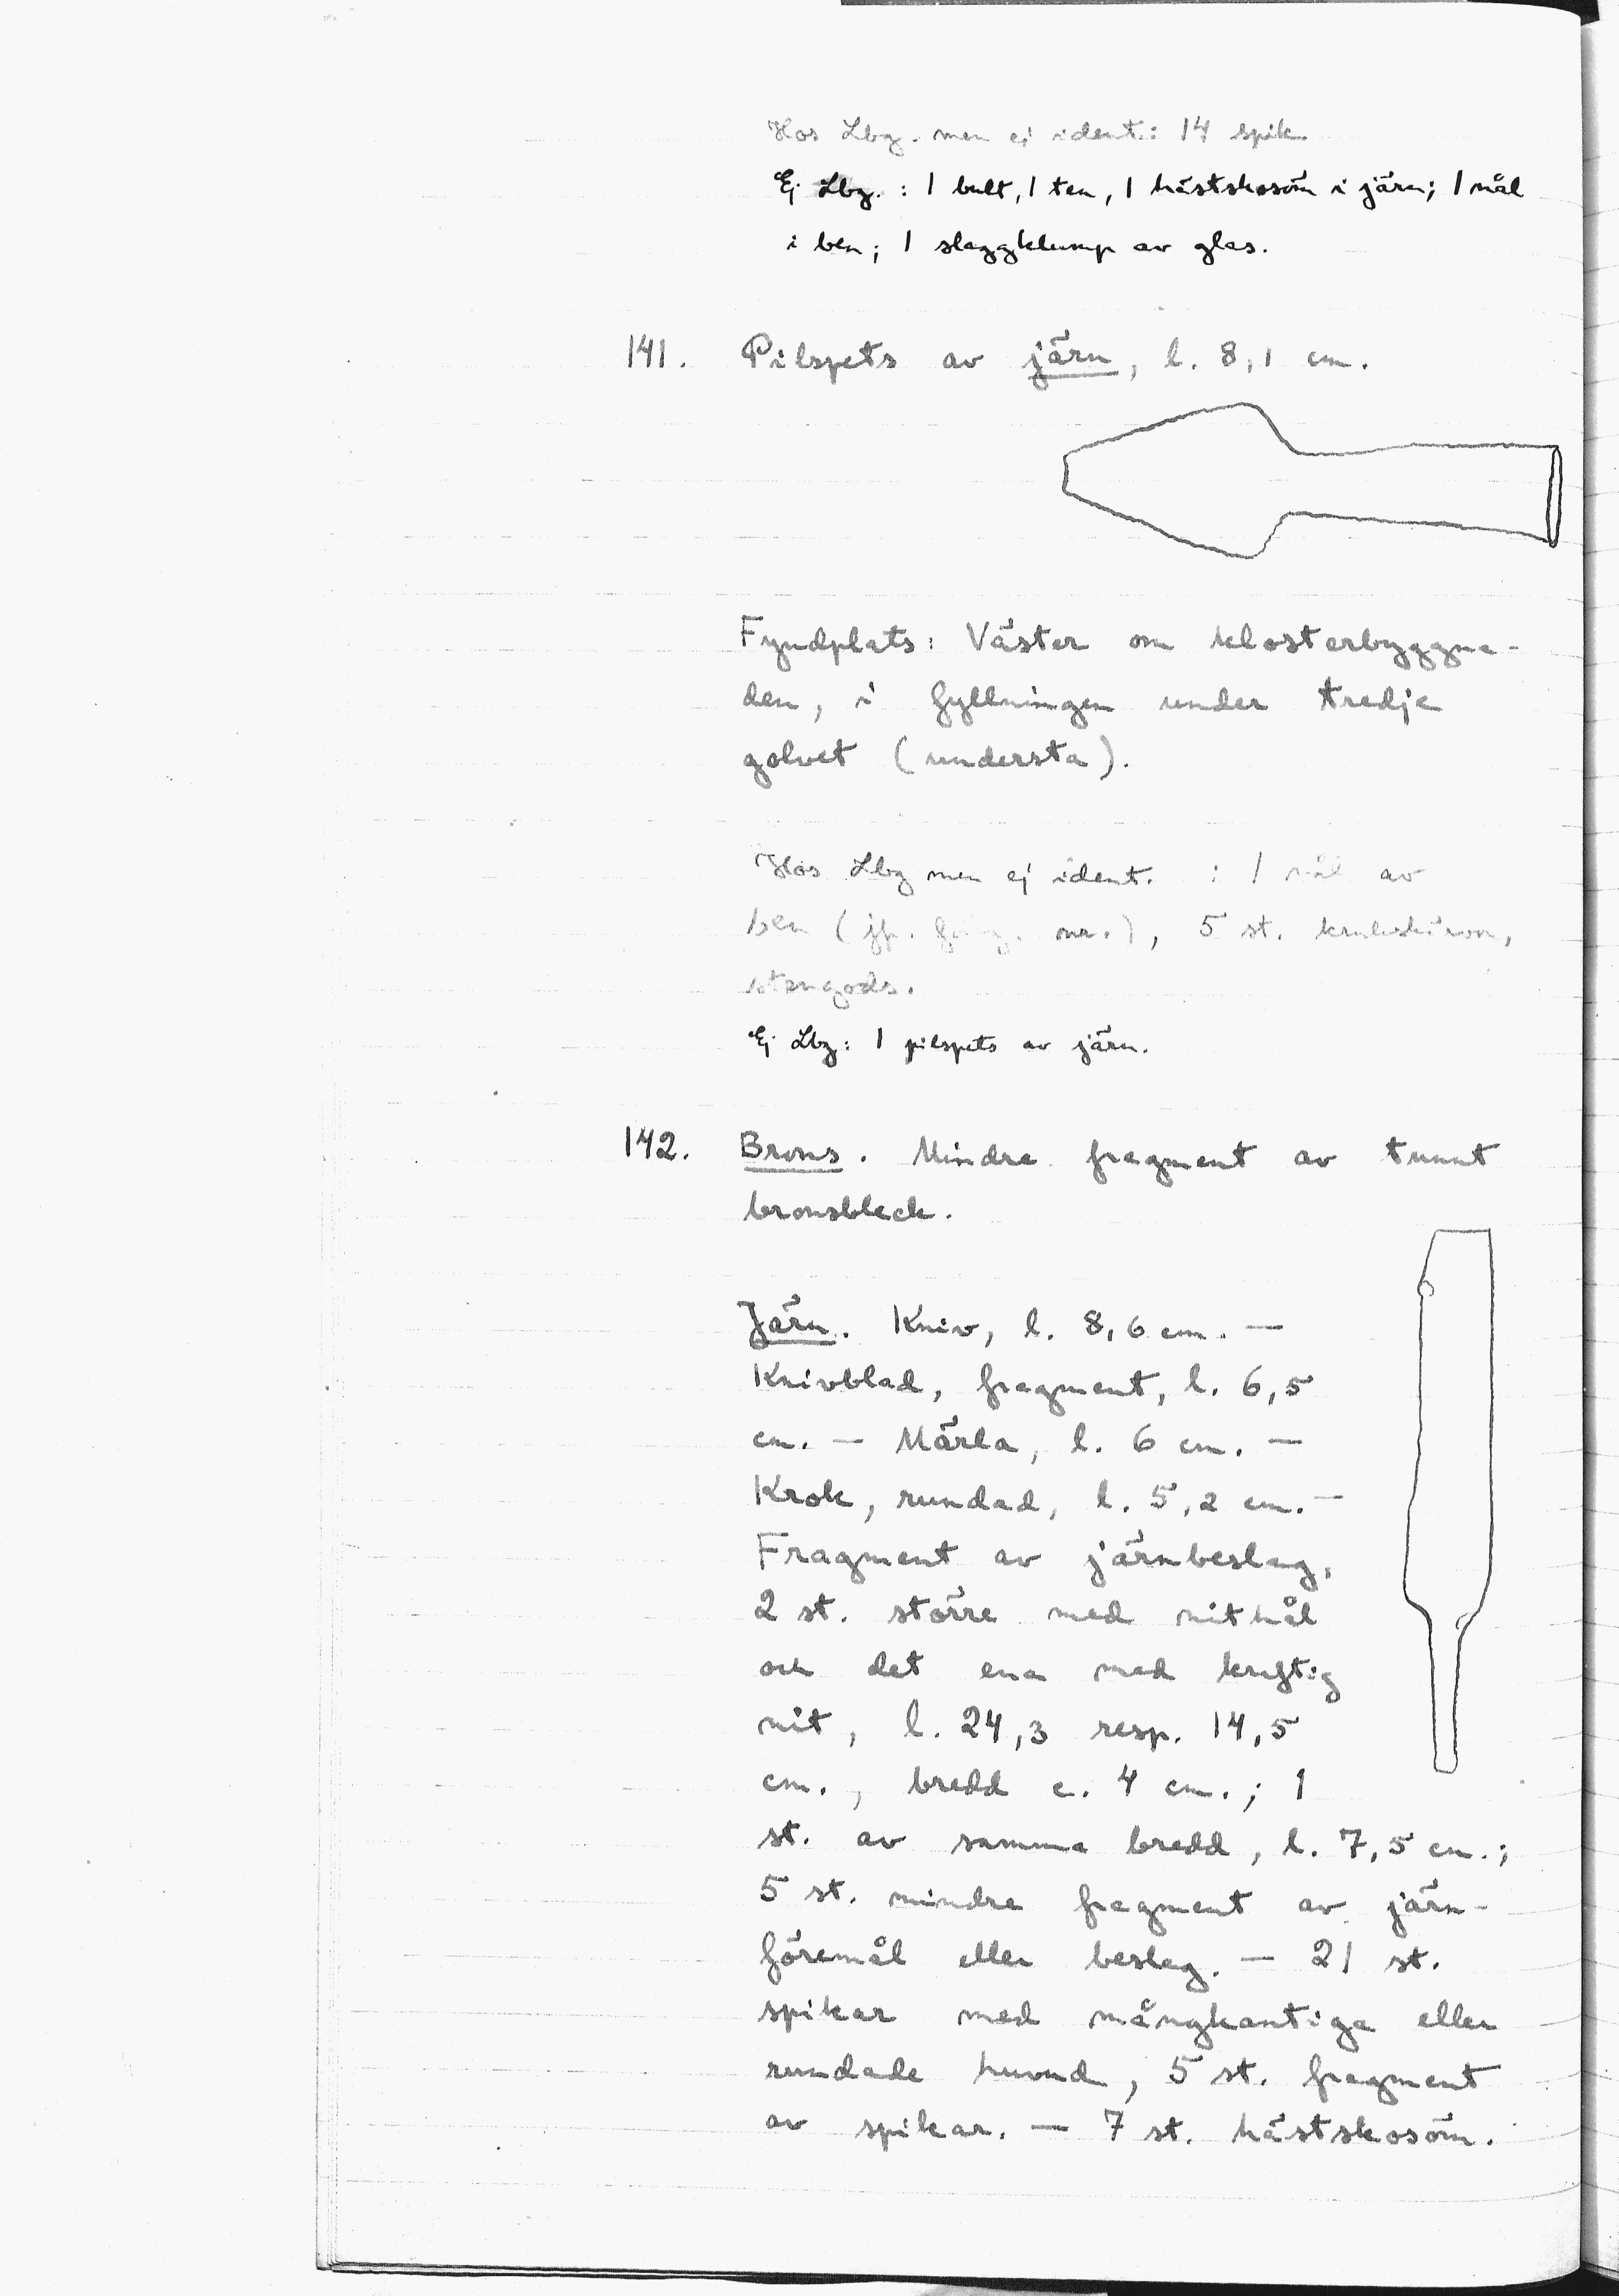 Hos Lbg. men ej ident.: 14 spik.
Ej Lbg. : 1 bult, 1 ten, 1 hästskosöm i järn; 1 nål
i ben; 1 slaggklump av glas.
141. Pilspets av järn, l. 8,1 cm.
Fyndplats: Väster om klosterbyggna-
den, i fyllningen under tredje
golvet (understa).
Hos Lbg men ej ident. : 1 nål av
ben (jfr. föreg. nr.), 5 st. krukskärvor,
stengods.
Ej Lbg: 1 pilspets av järn.
142. Brons. Mindre fragment av tunnt
bronsbleck.
Järn. Kniv, l. 8,6 cm. —
Knivblad, fragment, l. 6,5
cm. — Märla, l. 6 cm. —
Krok, rundad, l. 5,2 cm. —
Fragment av järnbeslag,
2 st. större med nithål
och det ena med kraftig
nit, l. 24,3 resp. 14,5
cm., bredd c. 4 cm.; 1
st. av samma bredd, l. 7,5 cm.;
5 st. mindre fragment av järn-
föremål eller beslag. — 21 st.
spikar med mångkantiga eller
rundade huvud, 5 st. fragment
av spikar. — 7 st. hästskosöm.